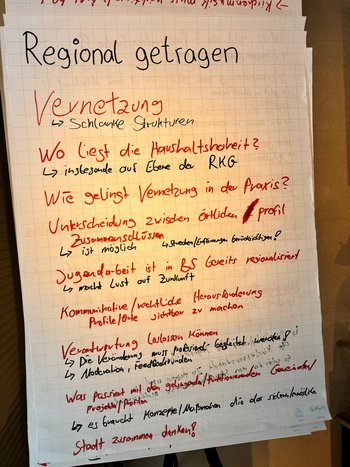 Regional getragen
Vernetzung
↳ Schlanke Strukturen
Wo liegt die Haushaltshoheit?
↳ insbesonde auf Ebene der RKG
Wie gelingt Vernetzung in der Praxis?
Unterscheidung zwischen örtlichen / profil
Zusammenschlüssen
↳ ist möglich ↳ Strecken/Entfernungen berücksichtigen?
Jugendarbeit ist in BS bereits regionalisiert
↳ macht Lust auf Zunkunft
Kommunikative/rechtliche Herausforderung
Profile/Orte sichtbar zu machen
Verantwortung loslassen können
↳ Die Veränderung muss professionell begleitet werden!
↳ Moderation, Feedbackrunden
Was passiert mit den gelingenden/funktionierenden Gemeinden/
Projekte/Profilen
↳ es braucht Konzepte/Maßnahmen die das
Stadt zusammen denken?